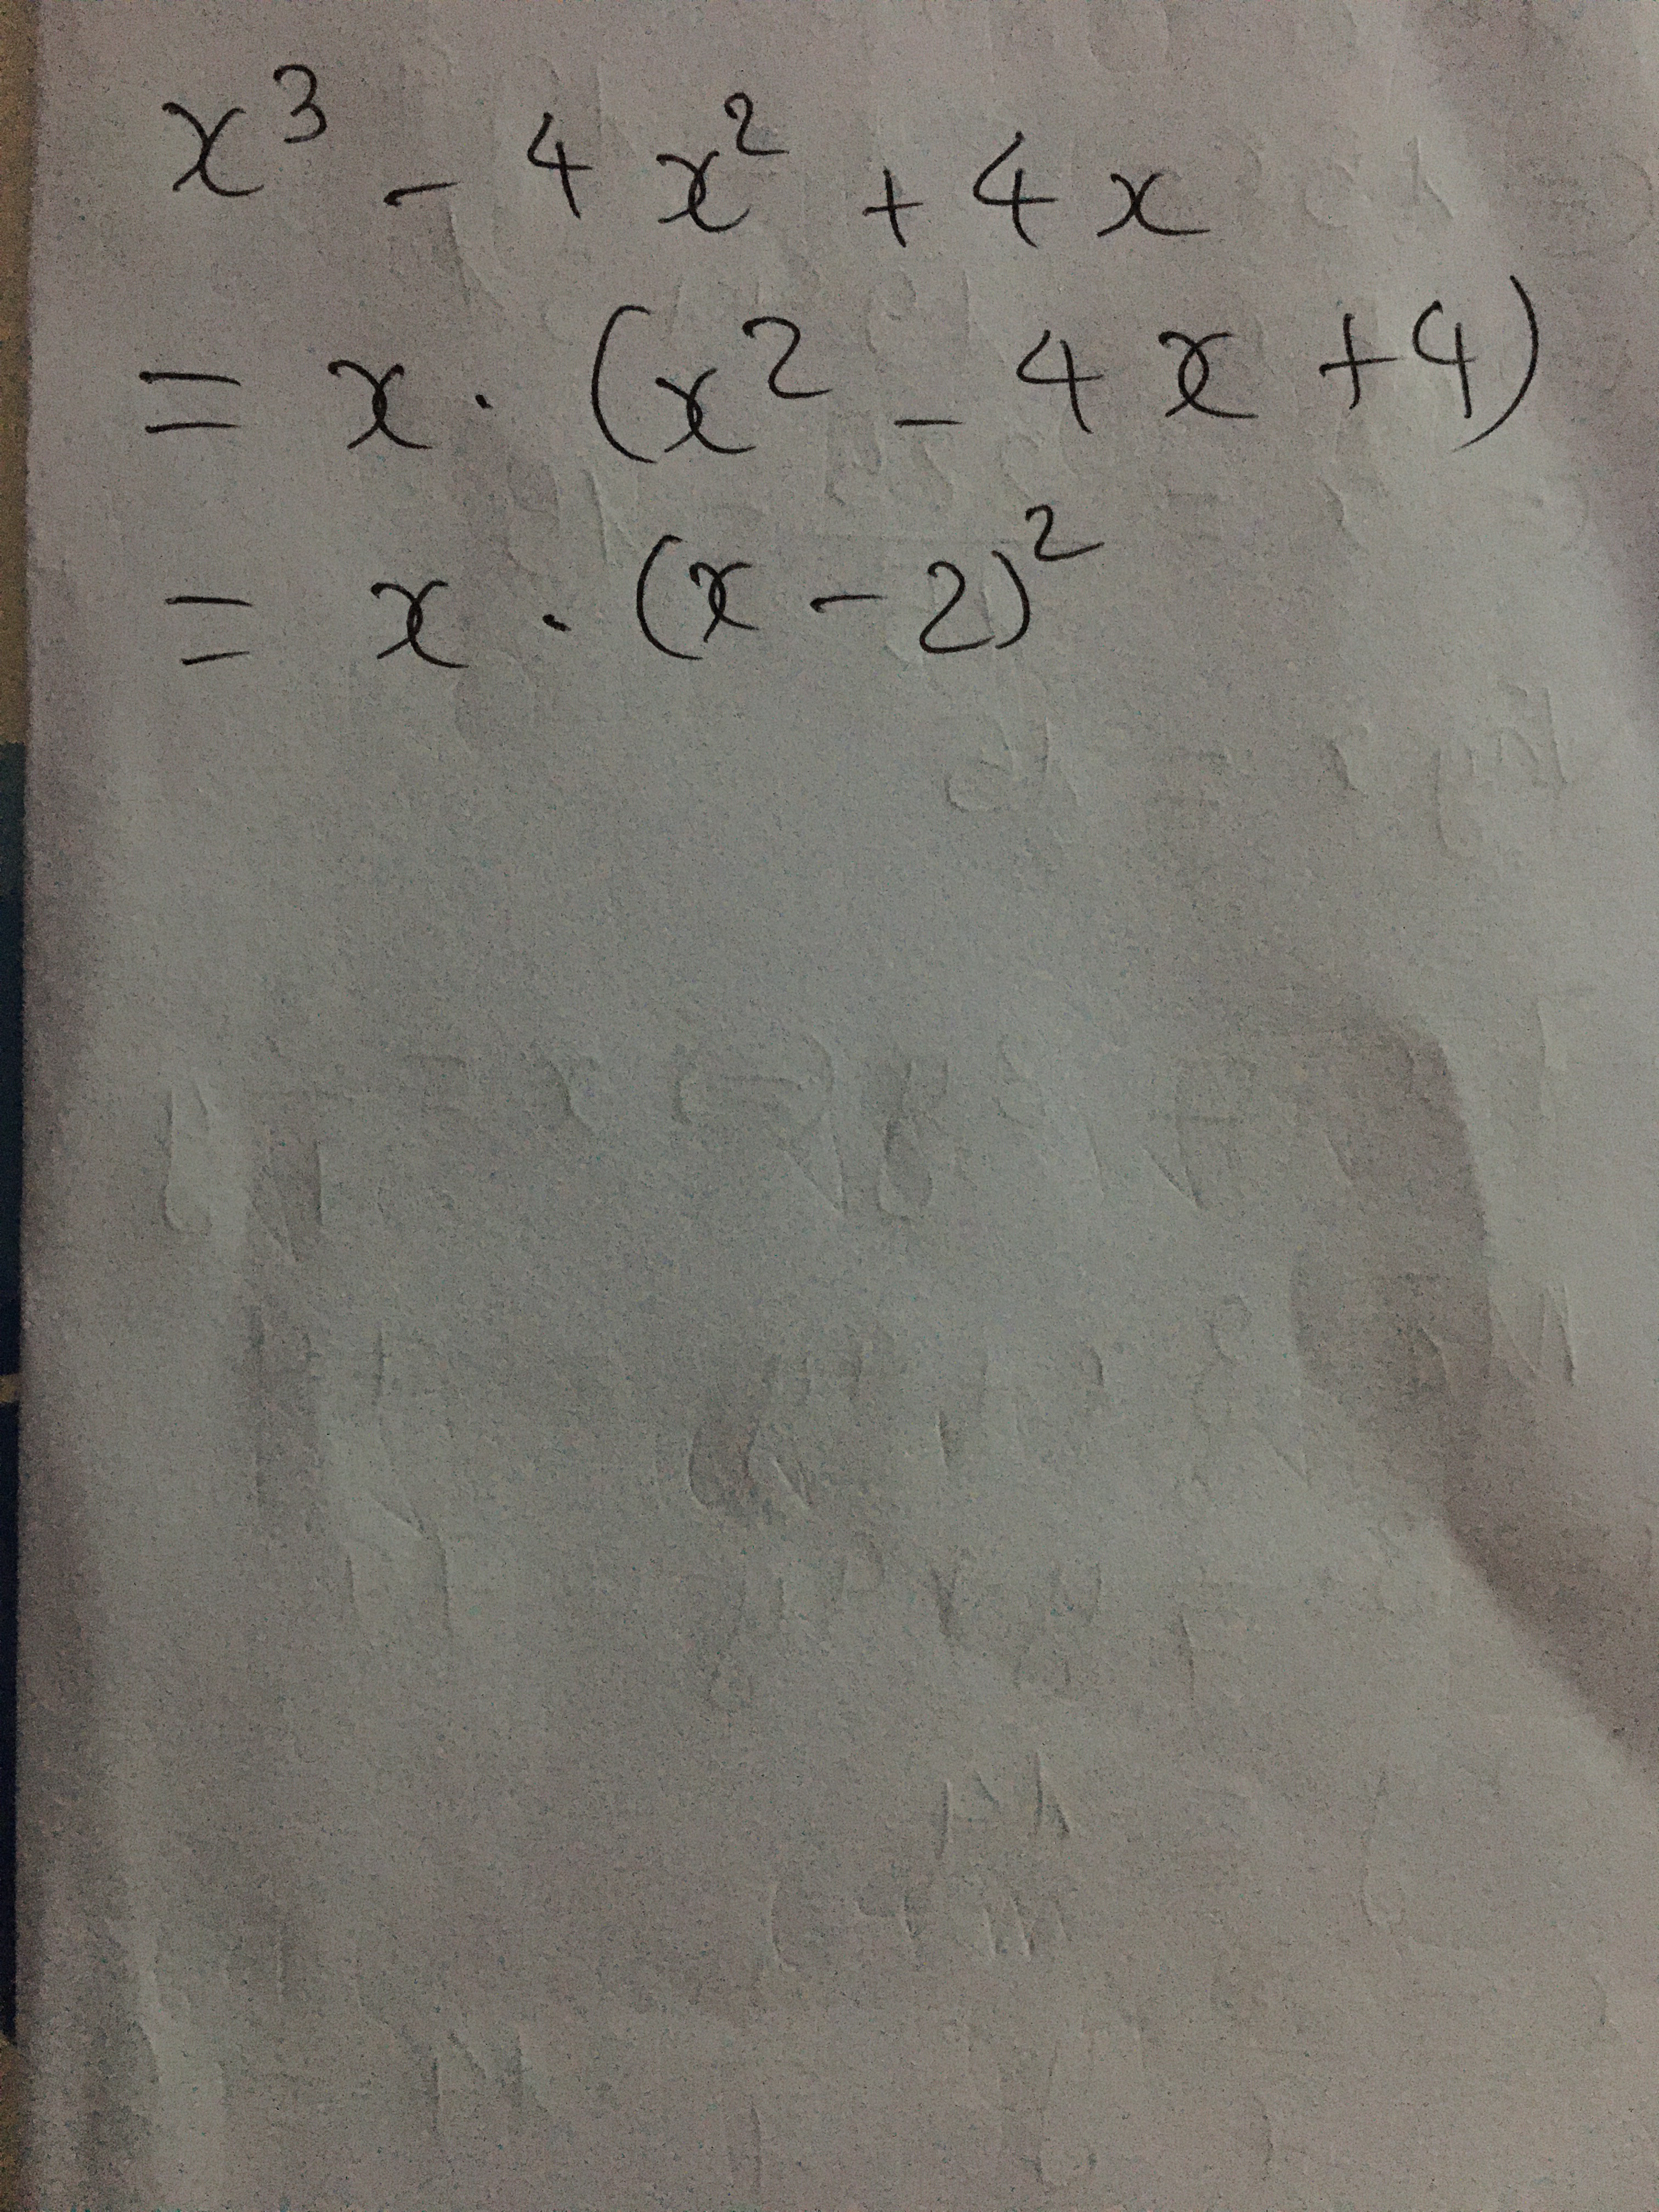 x³ - 4x² + 4x
= x · (x² - 4x + 4)
= x · (x - 2)²